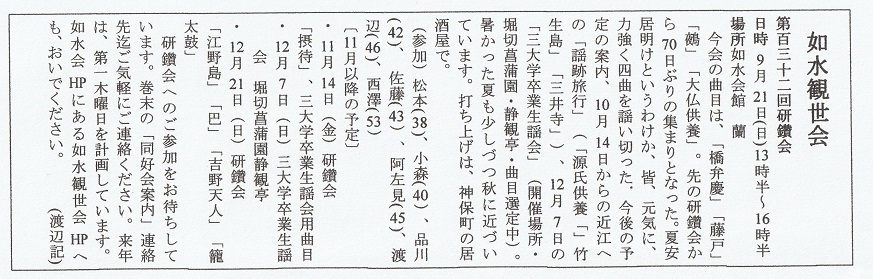 如水観世会
第百三十二回研鑽会
日時 9月21日(日)13時半～16時半
場所如水会館 蘭
今会の曲目は、「橋弁慶」「藤戸」
「鵺」「大仏供養」。先の研鑽会か
ら70日ぶりの集まりとなった。夏安
居明けというわけか、皆、元気に、
力強く四曲を謡い切った．今後の予
定の案内、10月14日からの近江へ
の「謡跡旅行」(「源氏供養「」竹
生島」「三井寺」)、12月7日の
「三大学卒業生謡会」(開催場所・
堀切菖蒲園・静観亭・曲目選定中)。
暑かった夏も少しづつ秋に近づい
ています。打ち上げは、神保町の居
酒屋で。
(参加)松本(38)、小森(40)、品川
(42)、佐藤(43)、阿左見(45)、渡
辺(46)、西澤(53)
〔11月以降の予定〕
・11月14日(金)研鑽会
「摂待」、三大学卒業生謡会用曲目
・12月7日(日)三大学卒業生謡
会 堀切菖蒲園静観亭
・12月21日(日)研鑽会
「江野島」「巴」「吉野天人」「籠
太鼓」
研鑽会へのご参加をお待ちして
います。巻末の「同好会案内」連絡
先迄ご気軽にご連絡ください。来年
は、第一木曜日を計画しています。
如水会HPにある如水観世会HPへ
も、おいでください。 (渡辺記)